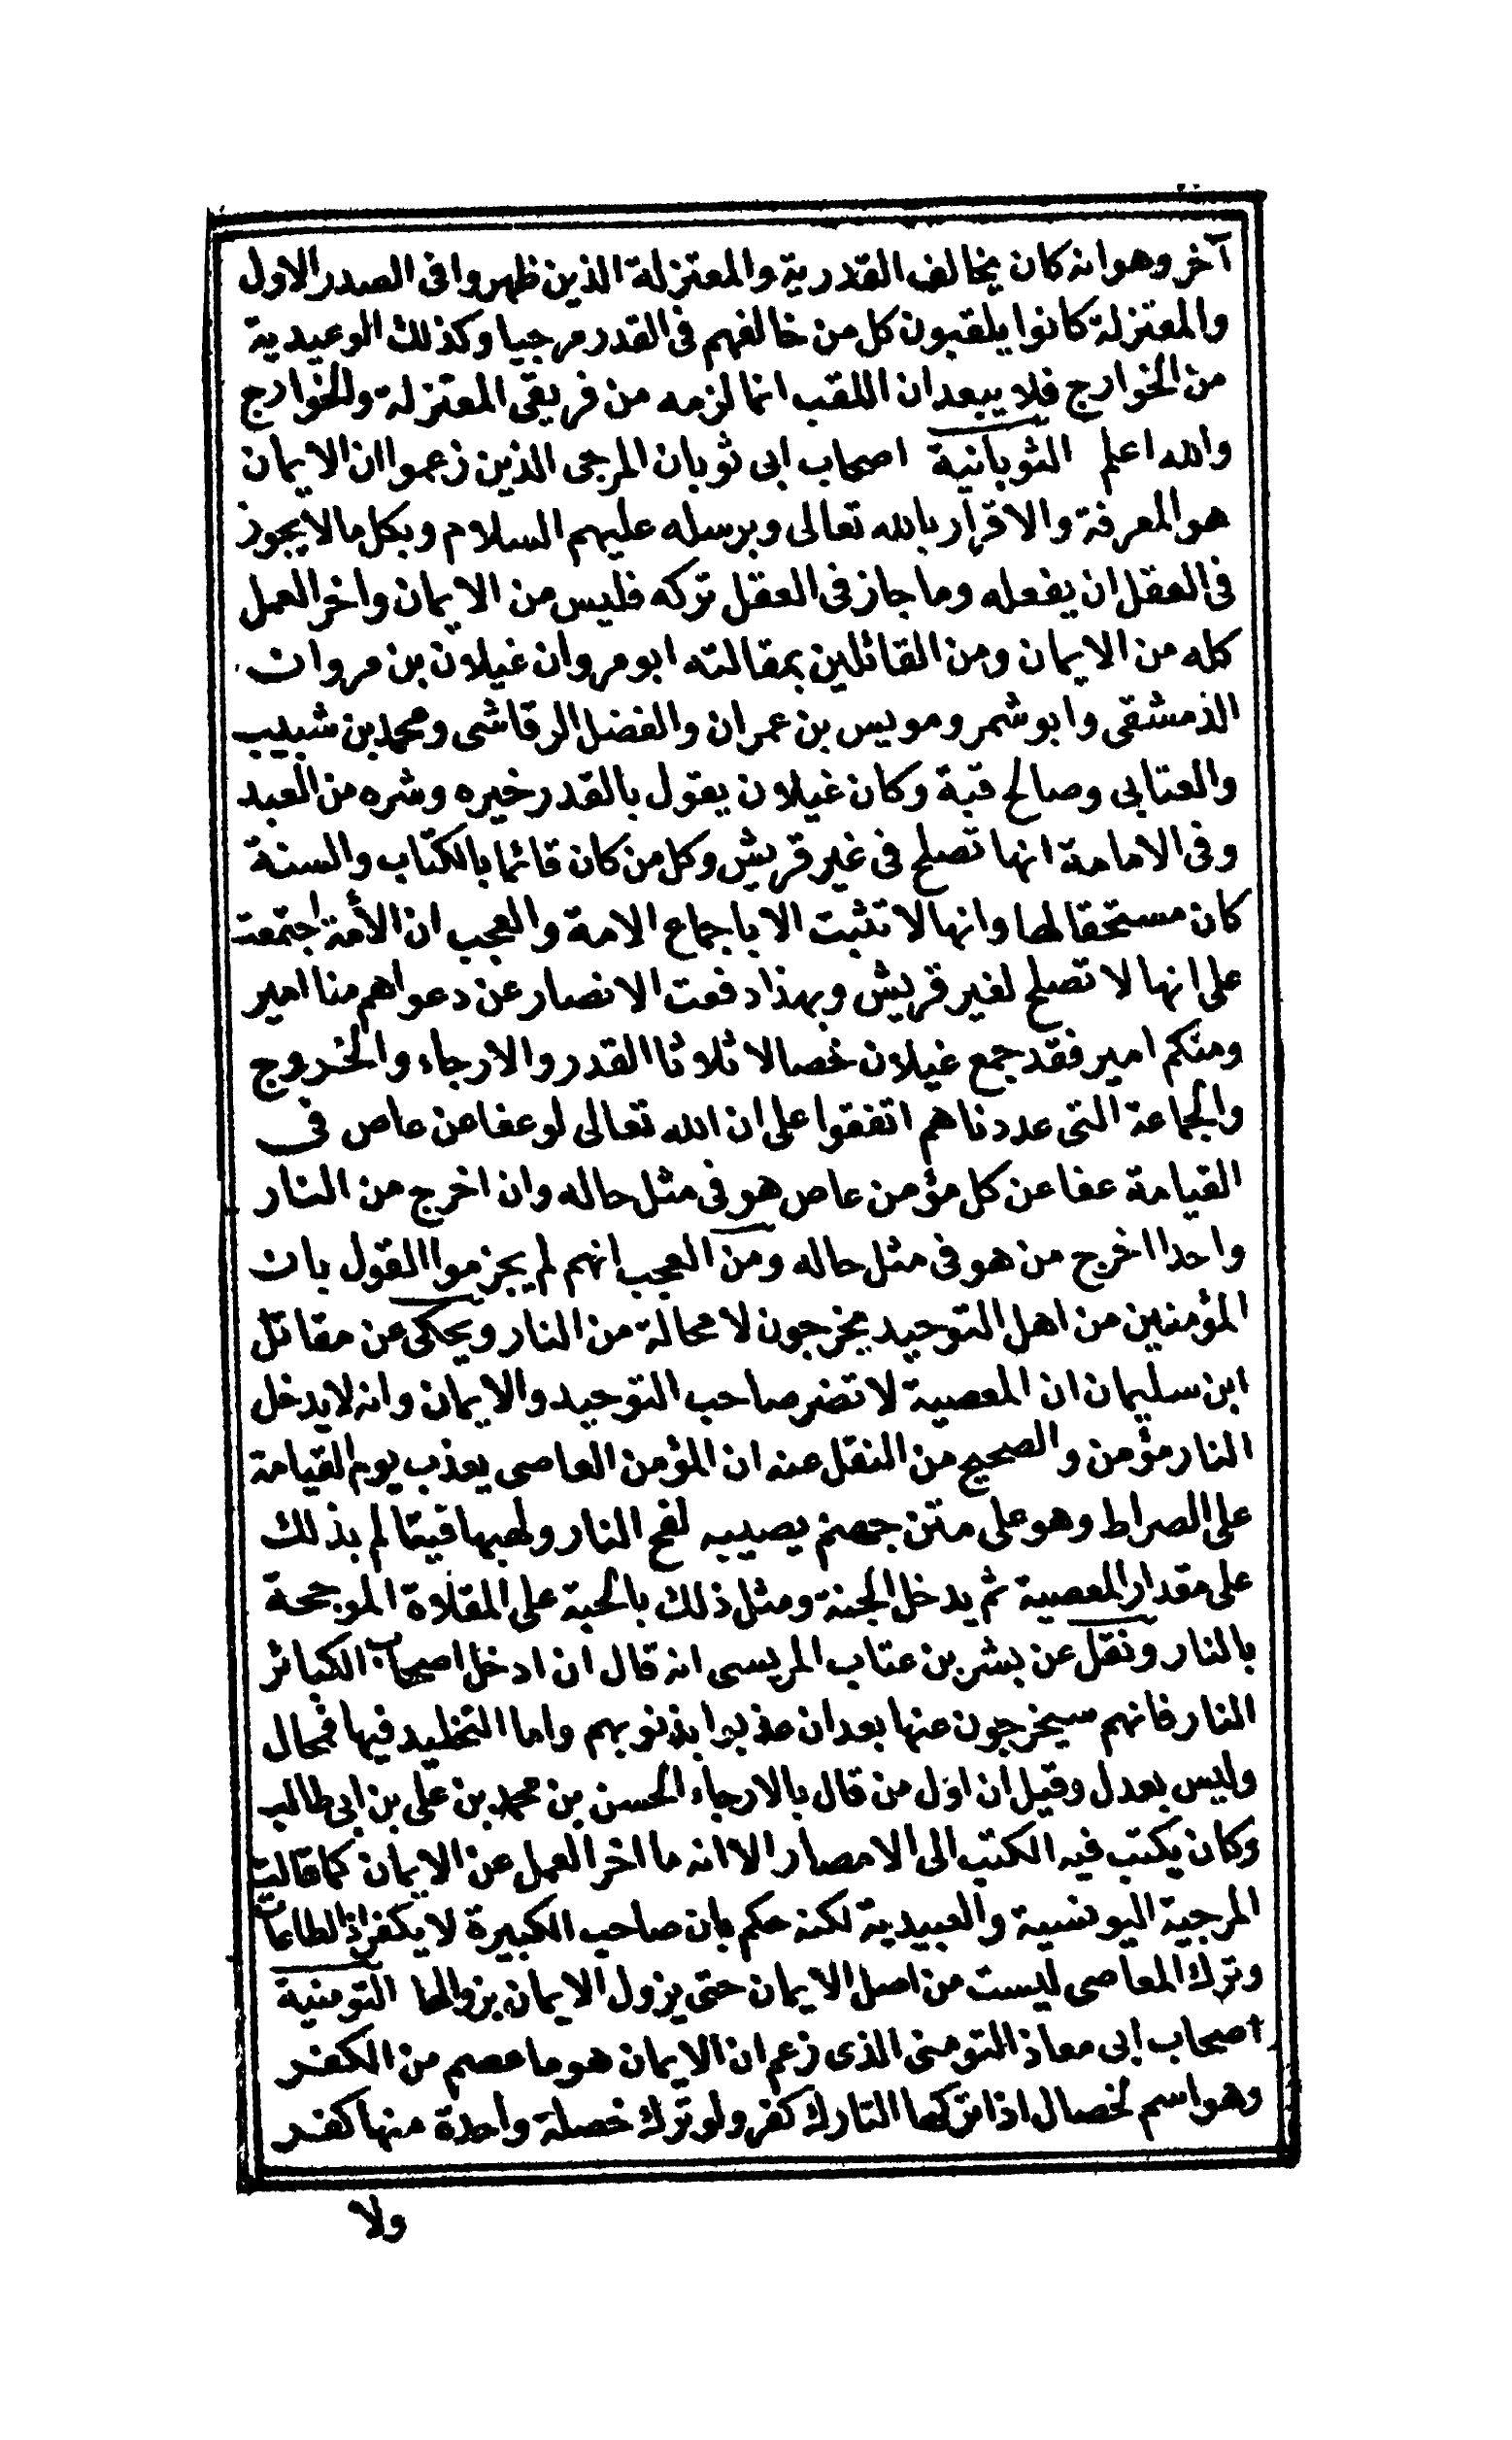 آخر وهو انه كان يخالف القدرية والمعتزلة الذين ظهروا فى الصدر الاول
والمعتزلة كانوا يلقبون كل من خالفهم فى القدر مرجيا وكذلك الوعيدية
من الخوارج فلا يبعد ان اللقب انما لزمه من فريقى المعتزلة والخوارج
والله اعلم الثوبانية اصحاب ابى ثوبان المرجى الذين زعموا ان الايمان
هو المعرفة والاقرار بالله تعالى وبرسله عليهم السلام وبكل ما لا يجوز
فى العقل ان يفعله وما جاز فى العقل تركه فليس من الايمان واخر العمل
كله من الايمان ومن القائلين بمقالته ابو مروان غيلان بن مروان
الدمشقى وابو شمر ومويس بن عمران والفضل الرقاشى ومحمد بن شبيب
والعتابى وصالح قبة وكان غيلان يقول بالقدر خيره وشره من العبد
وفى الامامة انها تصلح فى غير قريش وكل من كان قائما بالكتاب والسنة
كان مستحقا لها وانها لا تثبت الا باجماع الامة والعجب ان الأمة اجتمعت
على انها لا تصلح لغير قريش وبهذا دفعت الانصار عن دعواهم منا امير
ومنكم امير فقد جمع غيلان خصالا ثلاثا القدر والارجاء والخروج
والجماعة التى عددناهم اتفقوا على ان الله تعالى لو عفا عن عاص فى
القيامة عفا عن كل مؤمن عاص هو فى مثل حاله وان اخرج من النار
واحدا اخرج من هو فى مثل حاله ومن العجب انهم لم يجزموا القول بان
المؤمنين من اهل التوحيد يخرجون لا محالة من النار ويحكى عن مقاتل
ابن سليمان ان المعصية لا تضر صاحب التوحيد والايمان وانه لا يدخل
النار مؤمن والصحيح من النقل عنه ان المؤمن العاصى يعذب يوم القيامة
على الصراط وهو على متن جهنم يصيبه لفح النار ولهبها فيتالم بذلك
على مقدار المعصية ثم يدخل الجنة ومثل ذلك بالحبة على المقلاة الموججة
بالنار ونقل عن بشر بن عتاب المريسى انه قال ان ادخل اصحاب الكبائر
النار فانهم سيخرجون عنها بعد ان عذبوا بذنوبهم واما التخليد فيها فمحال
وليس بعدل وقيل ان اول من قال بالارجاء الحسن بن محمد بن على بن ابى طالب
وكان يكتب فيه الكتب الى الامصار الا انه ما اخر العمل عن الايمان كما قالت
المرجية اليونسية والعبيدية لكنه حكم بان صاحب الكبيرة لا يكفر اذ الطاعات
وترك المعاصى ليست من اصل الايمان حتى يزول الايمان بزوالها التومنية
اصحاب ابى معاذ التومنى الذى زعم ان الايمان هو ما عصم من الكفر
وهو اسم لخصال اذا تركها التارك كفر ولو ترك خصلة واحدة منها كفر
ولا